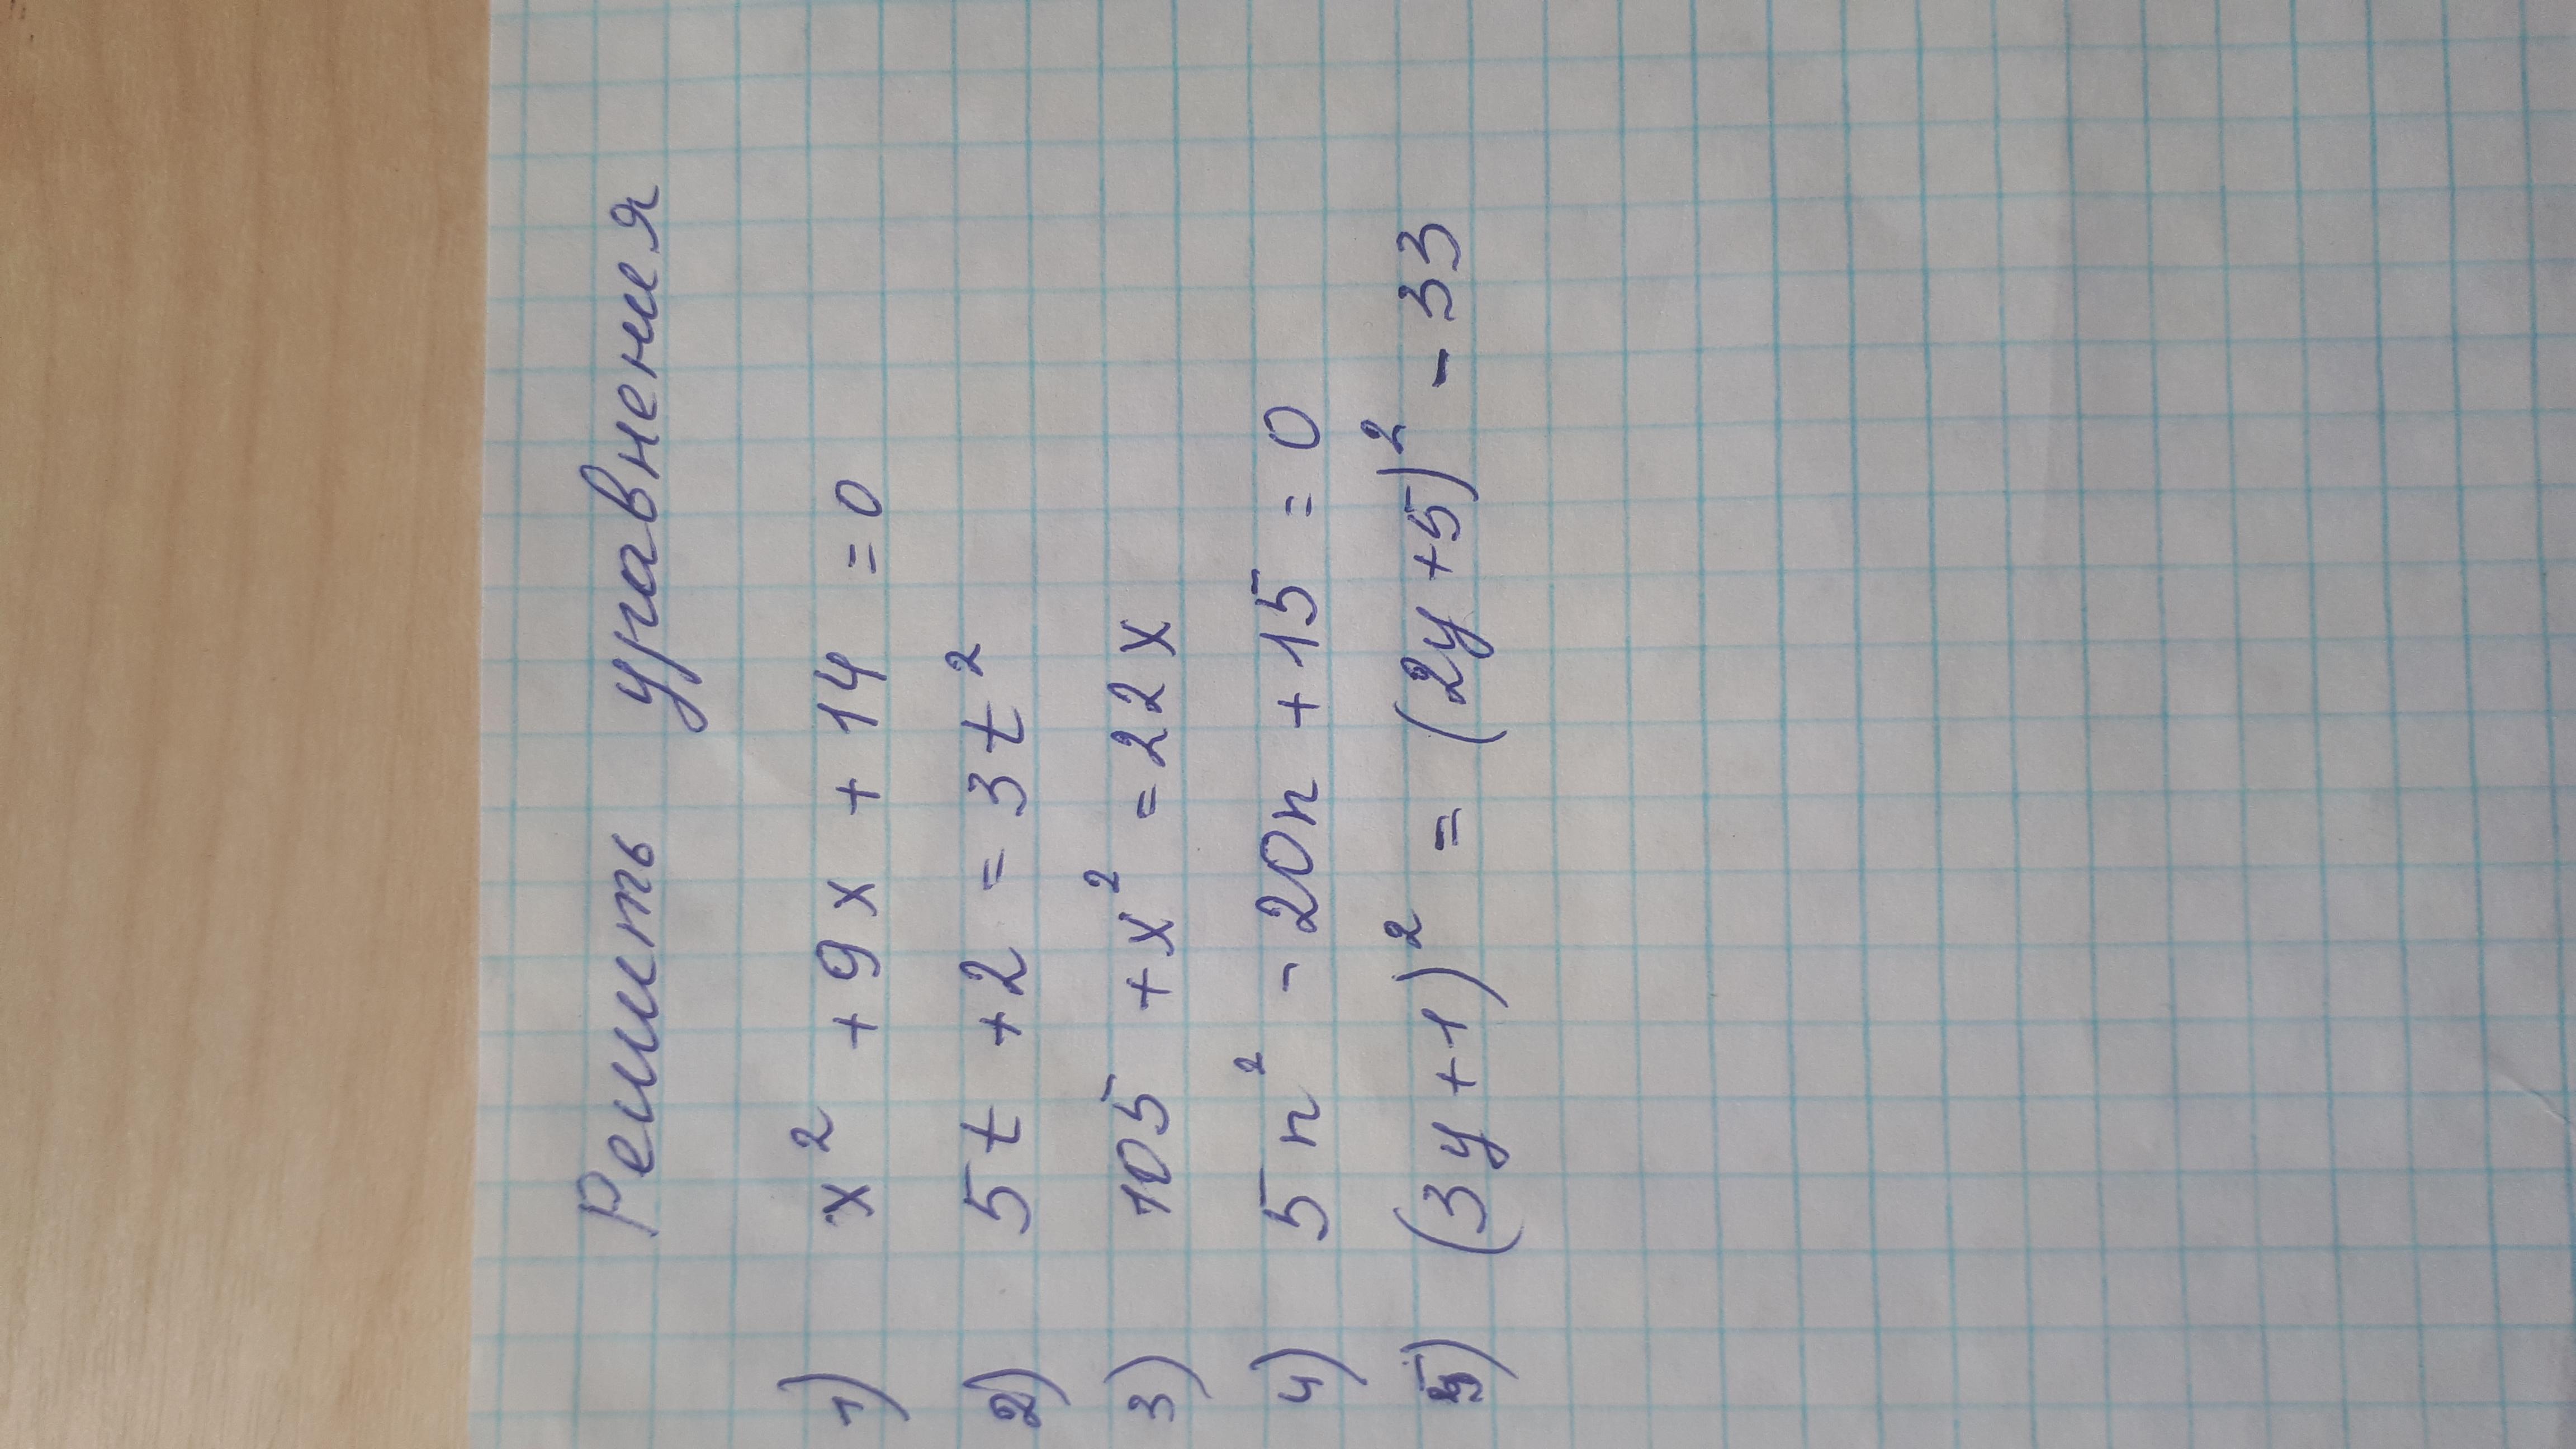 Решить уравнения
1) x² + 9x + 14 = 0
2) 5t + 2 = 3t²
3) 105 + x² = 22x
4) 5n² - 20n + 15 = 0
5) (3y + 1)² = (2y + 5)² - 33